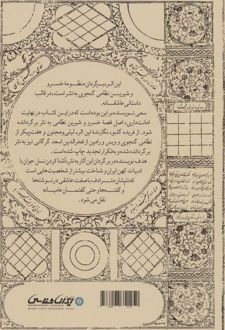 این اثر برگردان منظومهٔ خسرو
و شیرین نظامی گنجوی به نثر است، در قالب
داستانی عاشقانه.
سعی نویسنده بر این بوده است که در این کتاب در نهایت
امانت‌داری، اصل قصهٔ خسرو و شیرین نظامی به نثر برگردانده
شود. از فریده گلبو، نگارندهٔ این اثر، لیلی و مجنون و هفت‌پیکر از
نظامی گنجوی و ویس و رامین از فخرالدین اسعد گرگانی نیز به نثر
برگردانده شده و به تکرار تجدید چاپ شده است.
هدف نویسنده در برگردان این آثار به نثر، آشنا کردن نسل جوان با
ادبیات کهن ایران و شناخت بیشتر از شخصیت‌هایی است
که نامشان مترادف با صفت عاشقی در نوشته‌ها
و گفته‌ها و حتی گفتمان عامیانه
نقل می‌شود.